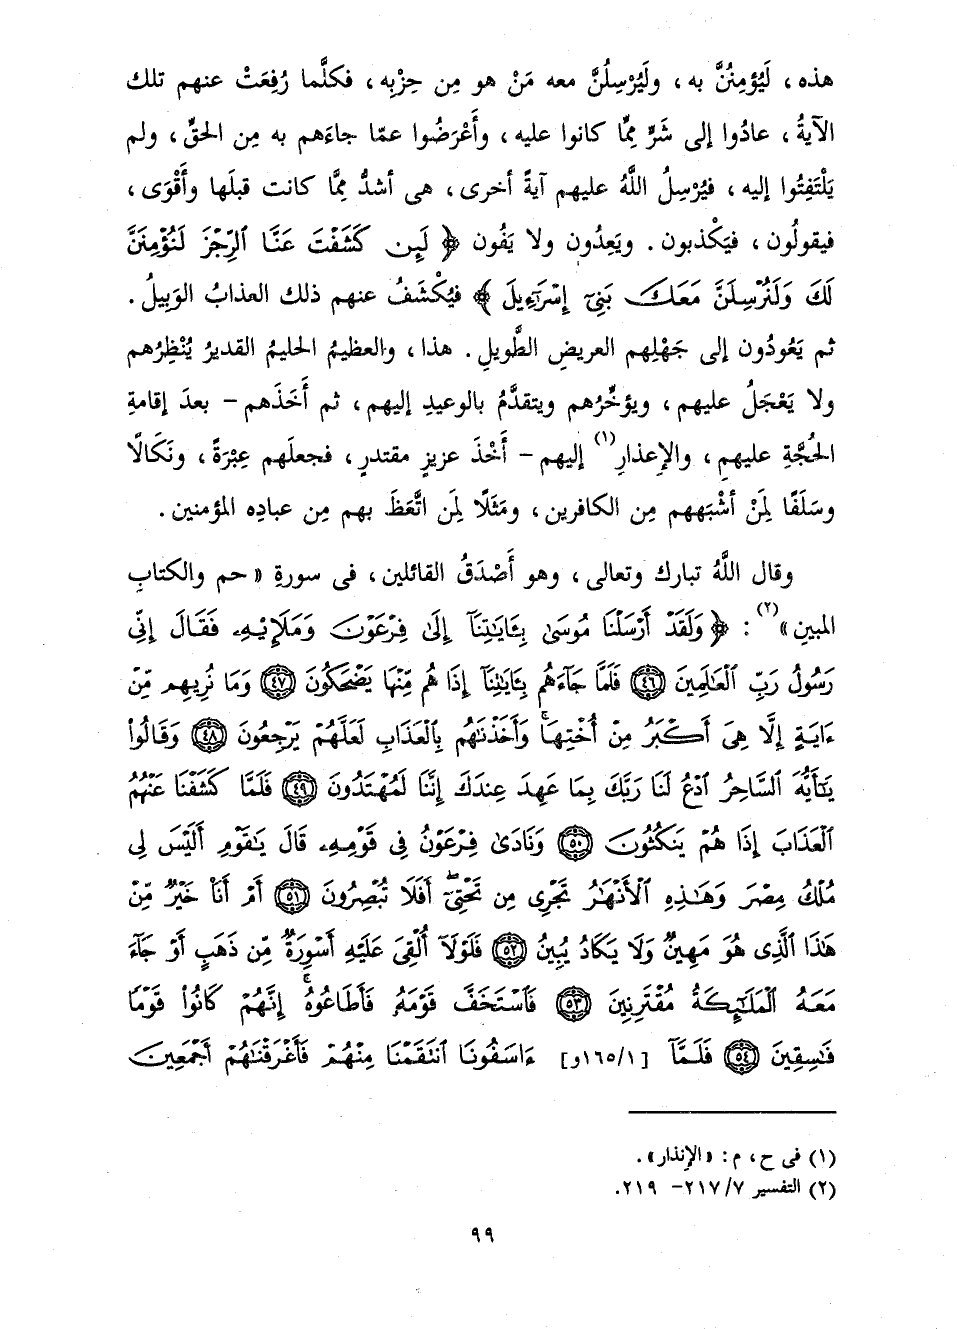 هذه، لَيُؤمِنُنَّ به، ولَيُرْسِلُنَّ معه مَنْ هو مِن حِزْبِه، فكلَّما رُفِعَتْ عنهم تلك
الآيةُ، عادُوا إلى شَرٍّ مِمَّا كانوا عليه، وأَعْرَضُوا عمّا جاءَهم به مِن الحقِّ، ولم
يَلْتَفِتُوا إليه، فيُرْسِلُ اللَّهُ عليهم آيةً أخرى، هى أشدُّ مِمَّا كانت قبلَها وأَقْوَى،
فيقولُون، فيَكْذبون. ويَعِدُون ولا يَفُون ﴿ لَئِن كَشَفْتَ عَنَّا ٱلرِّجْزَ لَنُؤْمِنَنَّ
لَكَ وَلَنُرْسِلَنَّ مَعَكَ بَنِىٓ إِسْرَٰٓءِيلَ ﴾ فيُكْشَفُ عنهم ذلك العذابُ الوَبِيلُ.
ثم يَعُودُون إلى جَهْلِهم العريضِ الطَّويلِ. هذا، والعظيمُ الحليمُ القديرُ يُنْظِرُهم
ولا يَعْجَلُ عليهم، ويؤخِّرُهم ويتقدَّمُ بالوعيدِ إليهم، ثم أَخَذَهم - بعدَ إقامةِ
الحُجَّةِ عليهم، والإعذارِ(١) إليهم - أَخْذَ عزيزٍ مقتدرٍ، فجعلَهم عِبْرَةً، ونَكَالًا
وسَلَفًا لِمَنْ أشْبَههم مِن الكافرين، ومَثَلًا لِمَن اتَّعَظَ بهم مِن عبادِه المؤمنين.
وقال اللَّهُ تبارك وتعالى، وهو أَصْدَقُ القائلين، فى سورةِ «حم والكتابِ
المبين»(٢): ﴿ وَلَقَدْ أَرْسَلْنَا مُوسَىٰ بِـَٔايَٰتِنَآ إِلَىٰ فِرْعَوْنَ وَمَلَإِي۟هِۦ فَقَالَ إِنِّى
رَسُولُ رَبِّ ٱلْعَٰلَمِينَ ٤٦ فَلَمَّا جَآءَهُم بِـَٔايَٰتِنَآ إِذَا هُم مِّنْهَا يَضْحَكُونَ ٤٧ وَمَا نُرِيهِم مِّنْ
ءَايَةٍ إِلَّا هِىَ أَكْبَرُ مِنْ أُخْتِهَا ۖ وَأَخَذْنَٰهُم بِٱلْعَذَابِ لَعَلَّهُمْ يَرْجِعُونَ ٤٨ وَقَالُوا۟
يَٰٓأَيُّهَ ٱلسَّاحِرُ ٱدْعُ لَنَا رَبَّكَ بِمَا عَهِدَ عِندَكَ إِنَّنَا لَمُهْتَدُونَ ٤٩ فَلَمَّا كَشَفْنَا عَنْهُمُ
ٱلْعَذَابَ إِذَا هُمْ يَنكُثُونَ ٥٠ وَنَادَىٰ فِرْعَوْنُ فِى قَوْمِهِۦ قَالَ يَٰقَوْمِ أَلَيْسَ لِى
مُلْكُ مِصْرَ وَهَٰذِهِ ٱلْأَنْهَٰرُ تَجْرِى مِن تَحْتِىٓ ۖ أَفَلَا تُبْصِرُونَ ٥١ أَمْ أَنَا۠ خَيْرٌ مِّنْ
هَٰذَا ٱلَّذِى هُوَ مَهِينٌ وَلَا يَكَادُ يُبِينُ ٥٢ فَلَوْلَآ أُلْقِىَ عَلَيْهِ أَسْوِرَةٌ مِّن ذَهَبٍ أَوْ جَآءَ
مَعَهُ ٱلْمَلَٰٓئِكَةُ مُقْتَرِنِينَ ٥٣ فَٱسْتَخَفَّ قَوْمَهُۥ فَأَطَاعُوهُ ۚ إِنَّهُمْ كَانُوا۟ قَوْمًا
فَٰسِقِينَ ٥٤ فَلَمَّآ [١/ ١٦٥و] ءَاسَفُونَا ٱنتَقَمْنَا مِنْهُمْ فَأَغْرَقْنَٰهُمْ أَجْمَعِينَ
(١) فى ح، م: «الإنذار».
(٢) التفسير ٧/ ٢١٧- ٢١٩.
٩٩